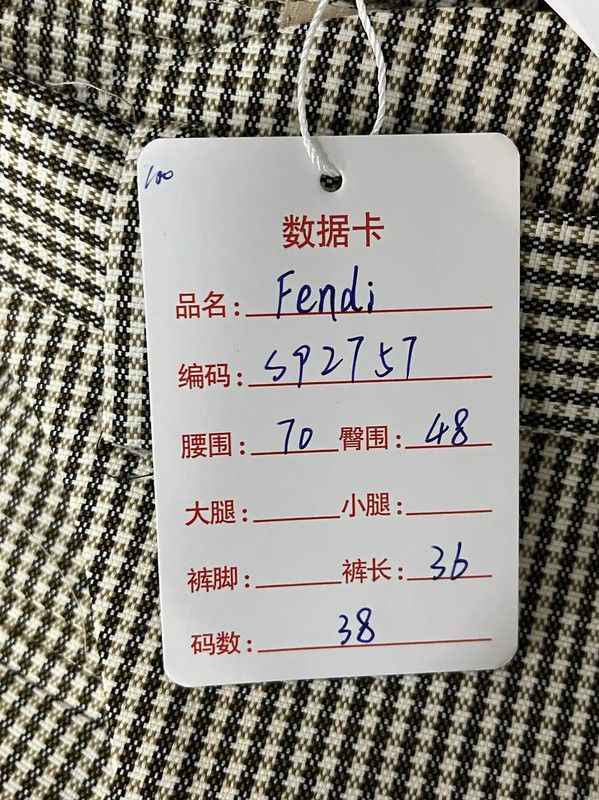 100
数据卡
品名: Fendi
编码: SP2757
腰围: 70 臀围: 48
大腿: 小腿:
裤脚: 裤长: 36
码数: 38